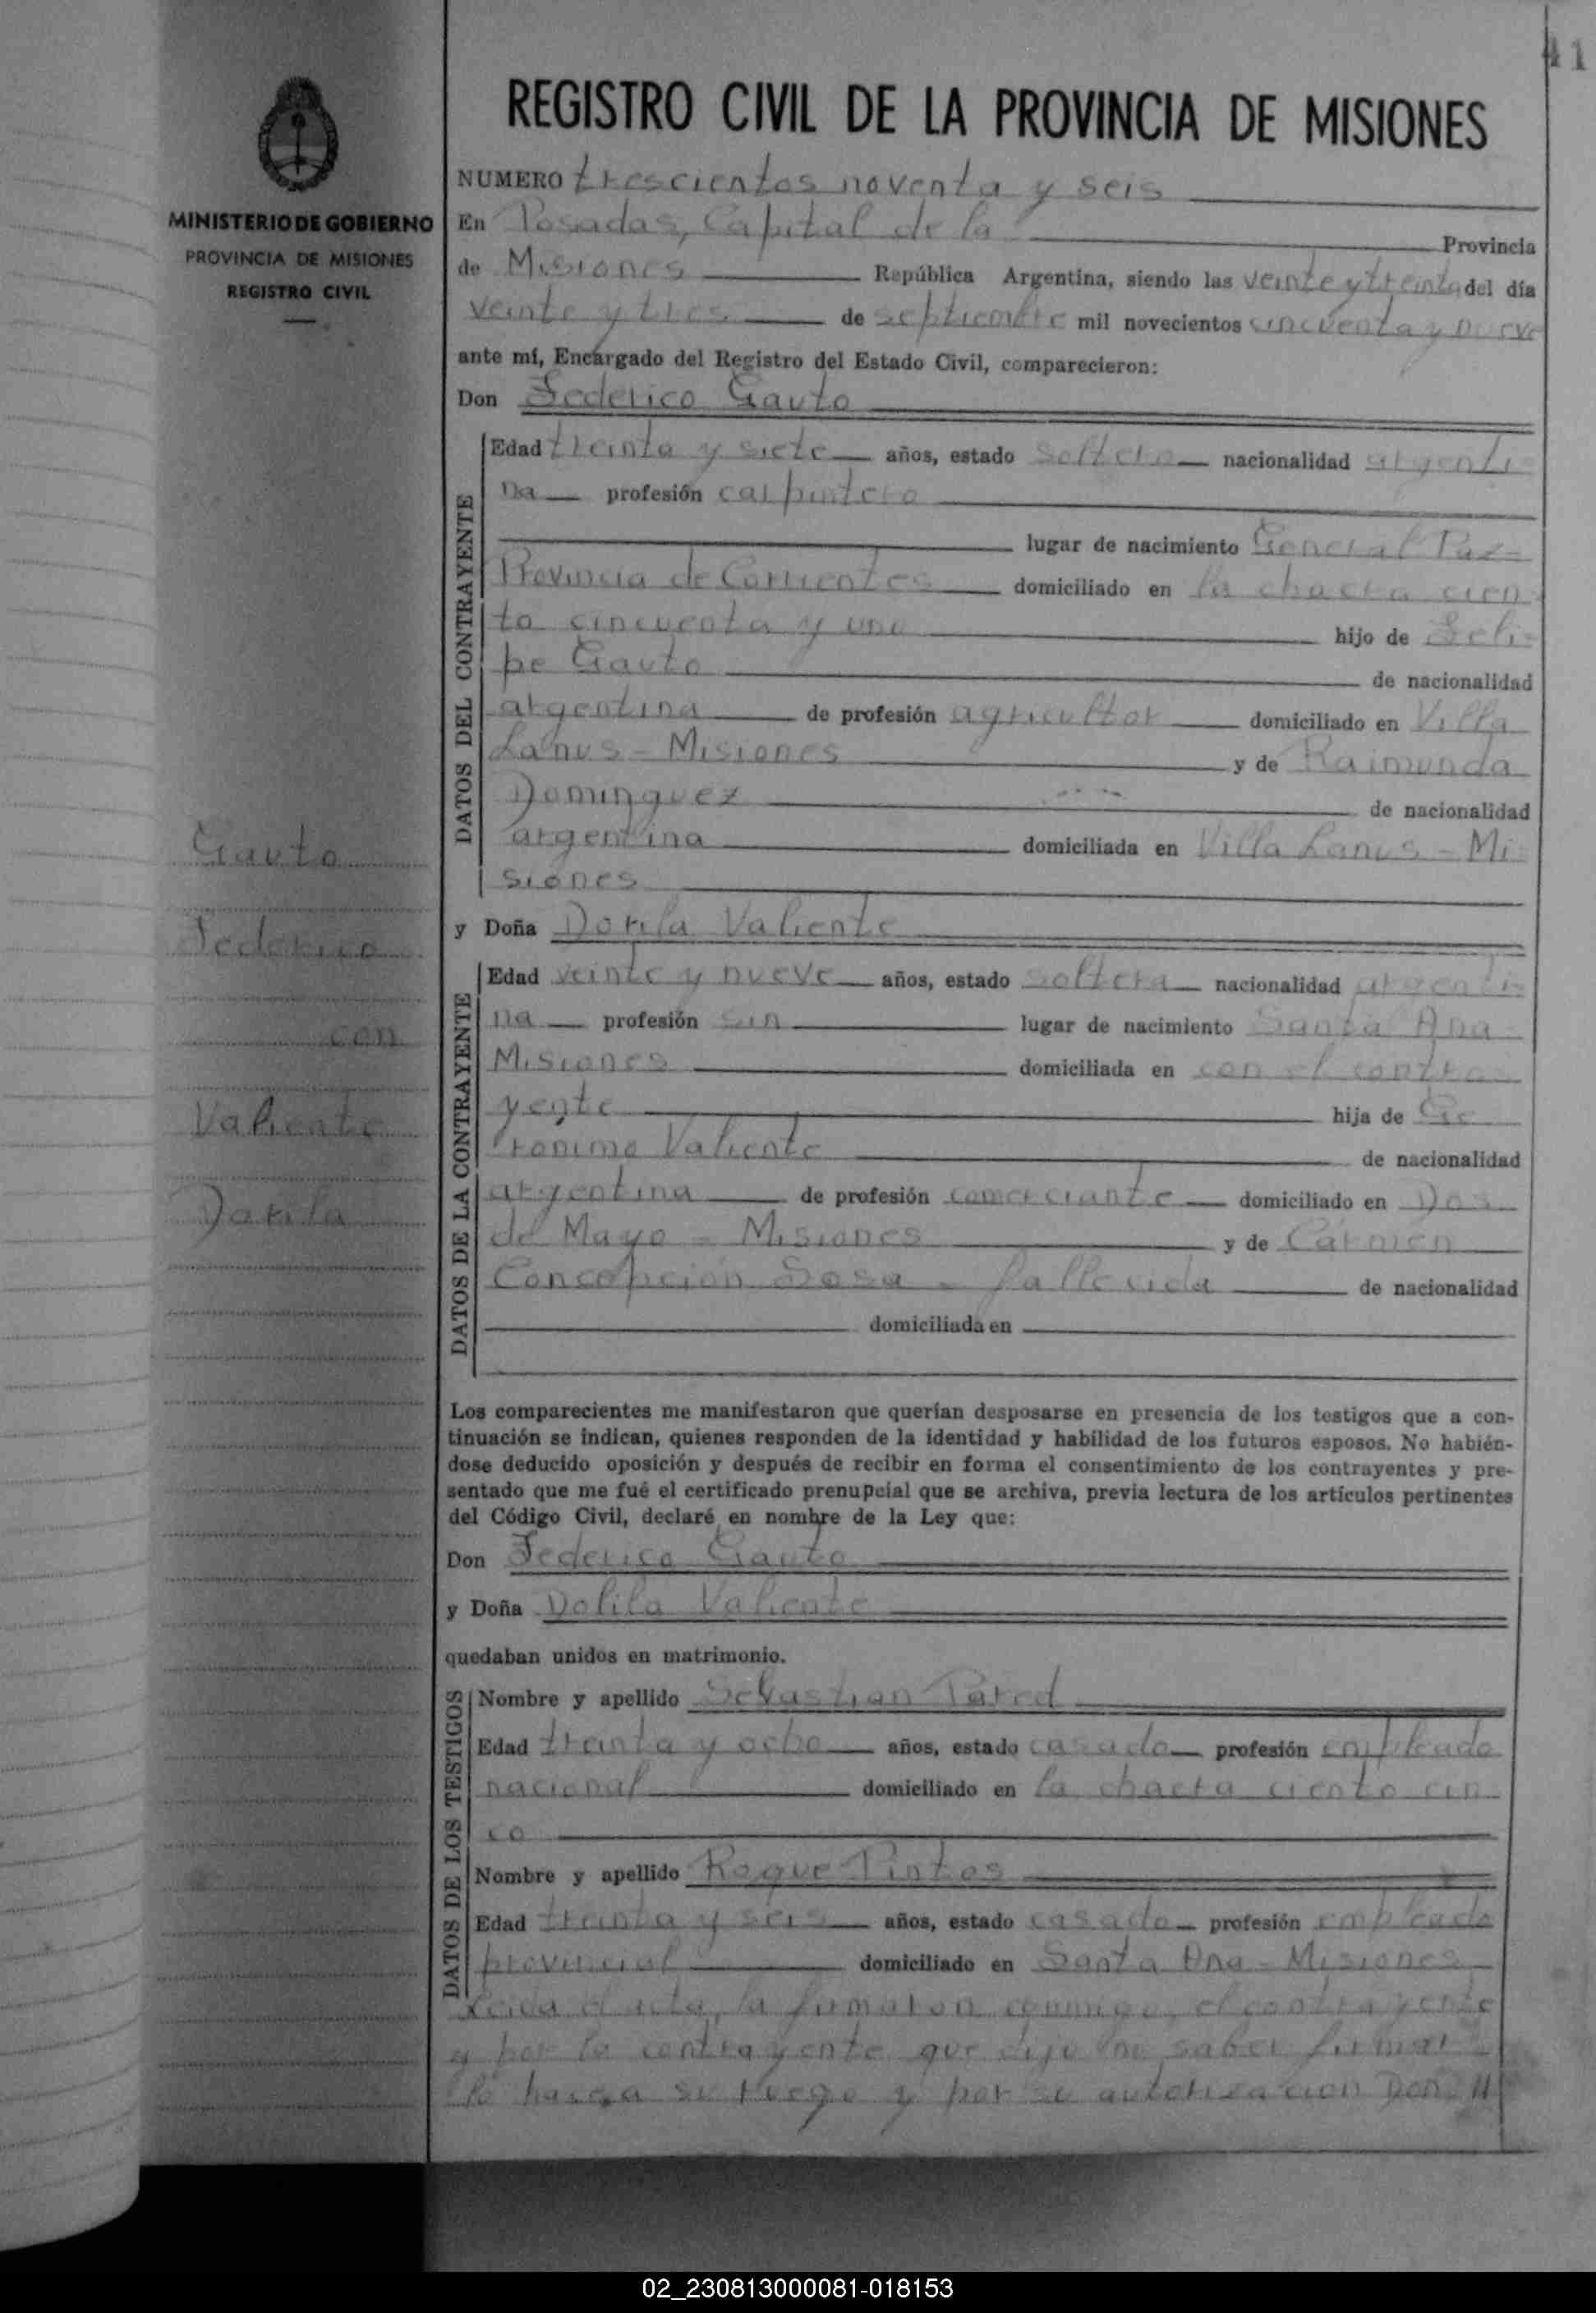 41
REGISTRO CIVIL DE LA PROVINCIA DE MISIONES
MINISTERIO DE GOBIERNO
PROVINCIA DE MISIONES
REGISTRO CIVIL
NUMERO trescientos noventa y seis
En Posadas, Capital de la Provincia
de Misiones República Argentina, siendo las veinte y treinta del día
veinte y tres de septiembre mil novecientos cincuenta y nueve
ante mí, Encargado del Registro del Estado Civil, comparecieron:
Don Federico Gauto
DATOS DEL CONTRAYENTE
Edad treinta y siete años, estado soltero nacionalidad argenti
na profesión carpintero
lugar de nacimiento General Paz-
Provincia de Corrientes domiciliado en la chacra cien
to cincuenta y uno hijo de Feli-
pe Gauto de nacionalidad
argentina de profesión agricultor domiciliado en Villa
Lanus - Misiones y de Raimunda
Dominguez de nacionalidad
argentina domiciliada en Villa Lanus - Mi
siones
Gauto
Federico
con
Valiente
Dorila
y Doña Dorila Valiente
DATOS DE LA CONTRAYENTE
Edad veinte y nueve años, estado soltera nacionalidad argenti
na profesión sin lugar de nacimiento Santa Ana
Misiones domiciliada en con el contra
yente hija de Ge
ronimo Valiente de nacionalidad
argentina de profesión comerciante domiciliado en Dos
de Mayo - Misiones y de Cármen
Concepción Sosa - fallecida de nacionalidad
domiciliada en
Los comparecientes me manifestaron que querían desposarse en presencia de los testigos que a con-
tinuación se indican, quienes responden de la identidad y habilidad de los futuros esposos. No habién-
dose deducido oposición y después de recibir en forma el consentimiento de los contrayentes y pre-
sentado que me fué el certificado prenupcial que se archiva, previa lectura de los artículos pertinentes
del Código Civil, declaré en nombre de la Ley que:
Don Federico Gauto
y Doña Dolila Valiente
quedaban unidos en matrimonio.
DATOS DE LOS TESTIGOS
Nombre y apellido Sebastian Pared
Edad treinta y ocho años, estado casado profesión empleado
nacional domiciliado en la chacra ciento cin
co
Nombre y apellido Roque Pintos
Edad treinta y seis años, estado casado profesión empleado
provincial domiciliado en Santa Ana - Misiones
Leida el acta, la firmaron conmigo, el contrayente
y por la contrayente que dijo no saber firmar
lo hace a su ruego y por su autorizacion Don
02_230813000081-018153